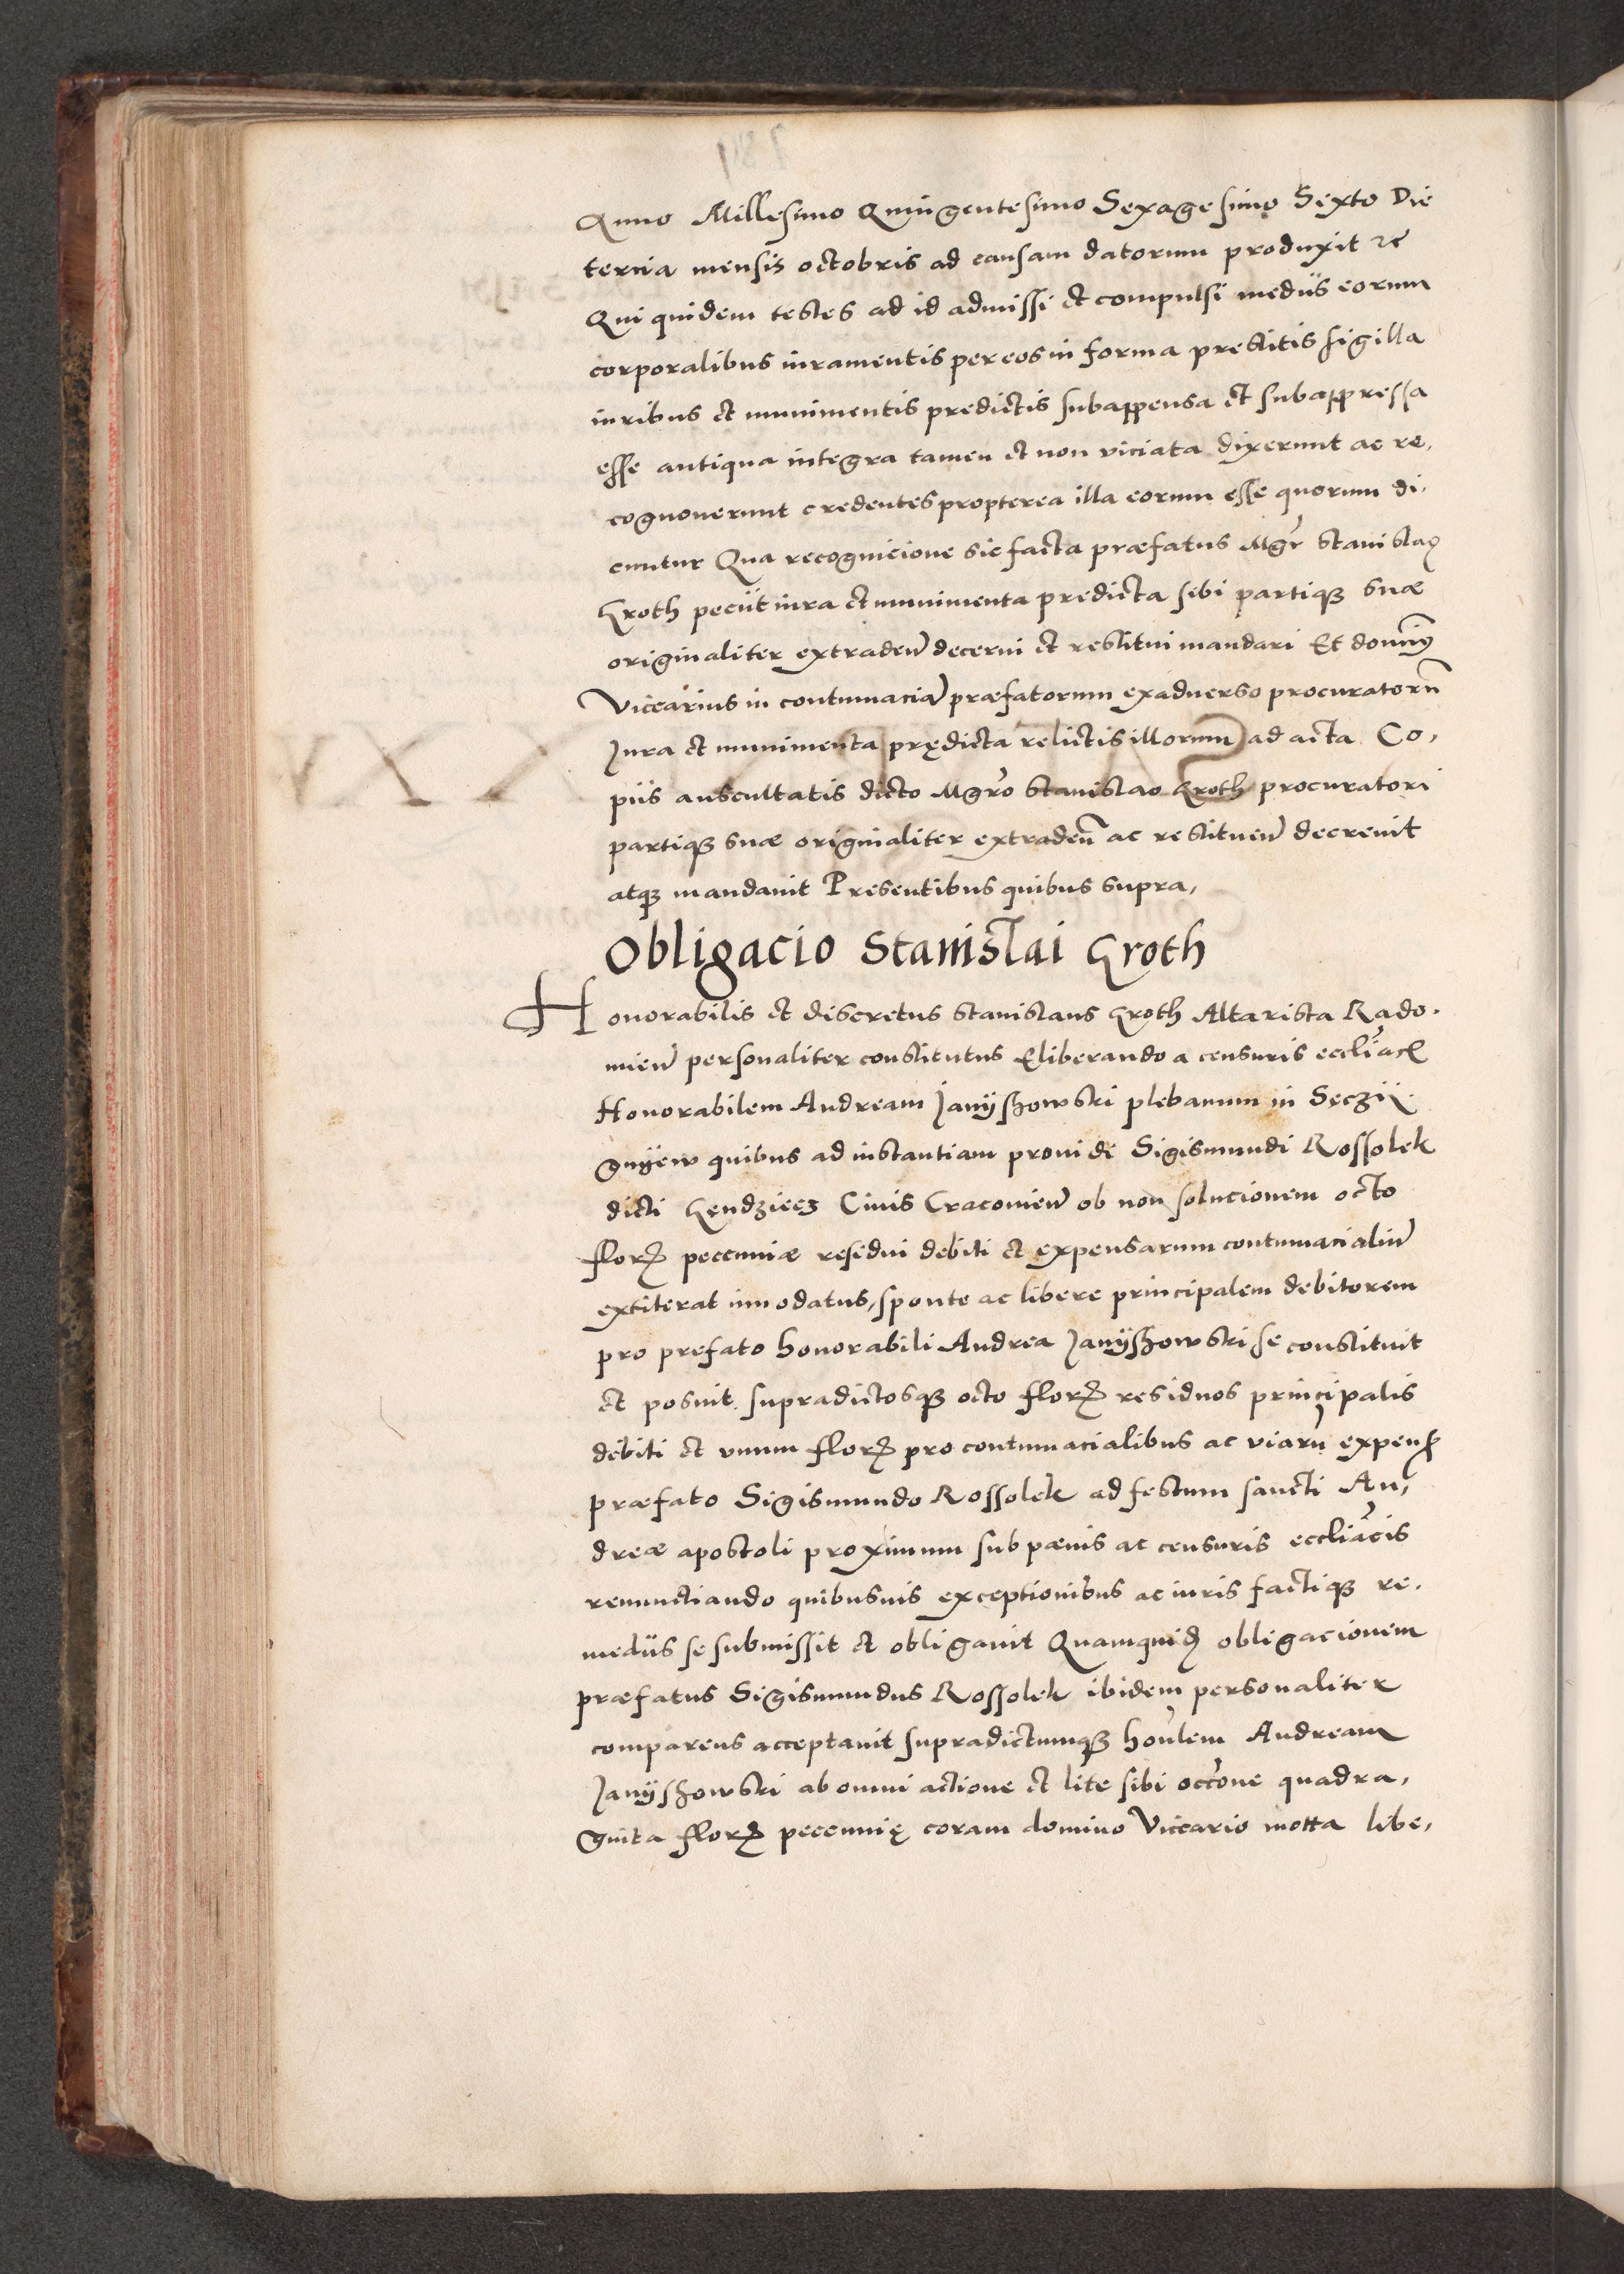 Anno Millesimo Quingentesimo Sexagesimo Sexto Die
tercia mensis octobris ad causam datorum produxit etc
Qui quidem testes ad id admissi et compulsi mediis eorum
corporalibus iuramentis per eos in forma prestitis sigilla
iuribus et munimentis predictis subappensa et subappressa
esse antiqua integra tamen et non viciata dixerunt ac re,
cognoverunt credentes propterea illa eorum esse quorum di,
cuntur Qua recognicione sic facta præfatus Mgr̃ Stanislaꝰ
Groth peciit iura et munimenta predicta sibi partiqꝫ suæ
originaliter extradeñ decerni et restitui mandari Et domiñꝰ
Vicearius in contumaciã præfatorum exadverso procuratorũ
Jura et munimenta prędicta relictis illorum ad acta Co,
piis auscultatis dicto Mgr̃o Stanislao Groth procuratori
partiqꝫ suæ originaliter extradeñ ac restitueñ decrevit
atqꝫ mandavit Presentibus quibus supra,
Obligacio Stanislai Groth
Honorabilis et discretus Stanislaus Groth Altarista Rado,
mieñ personaliter constitutus Eliberando a censuris eccliãcꝭ
Honorabilem Andream Janÿszowski plebanum in Sęczÿ
gnÿew quibus ad instantiam providi Sigismundi Rossolek
dicti Gendziecz Civis Cracovieñ ob non solucionem octo
florꝭ peccuniæ residui debiti et expensarum contumacialiũ
extiterat innodatus, sponte ac libere principalem debitorem
pro prefato honorabili Andrea Janÿszowski se constituit
et posuit supradictosqꝫ octo florꝭ residuos principalis
debiti et unum florꝭ pro contumacialibus ac viarũ expensꝭ
præfato Sigismundo Rossolek ad festum sancti An,
dreæ apostoli proximum sub pænis ac censuris eccliãcis
renunctiando quibusvis exceptionibus ac iuris factiqꝫ re,
mediis se submissit et obligavit Quamquidꝭ obligacionem
præfatus Sigismundus Rossolek ibidem personaliter
comparens acceptavit supradictumqꝫ hoñlem Andream
Janÿszowski ab omni actione et lite sibi occõne quadra,
ginta florꝭ peccunię coram domino Viceario motta libe,